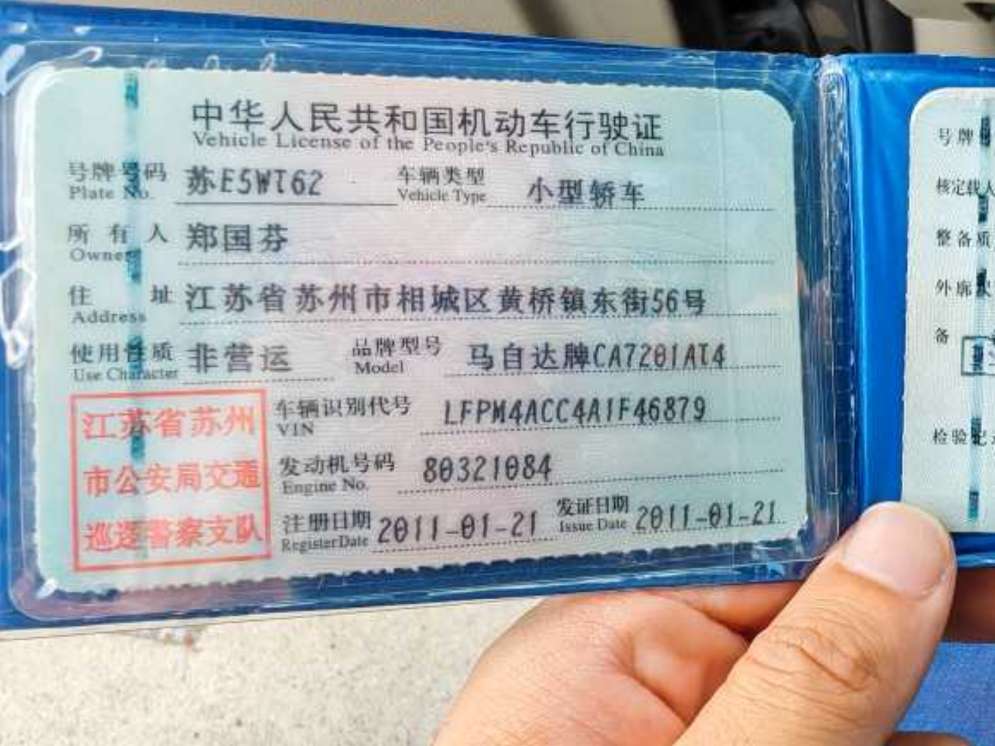 中华人民共和国机动车行驶证
Vehicle License of the People's Republic of China
号牌号码 苏E5WT62 车辆类型 小型轿车
Plate No. Vehicle Type
所有人 郑国芬
Owner
住址 江苏省苏州市相城区黄桥镇东街56号
Address
使用性质 非营运 品牌型号 马自达牌CA7201AT4
Use Character Model
江苏省苏州
市公安局交通
巡逻警察支队
车辆识别代号 LFPM4ACC4A1F46879
VIN
发动机号码 80321084
Engine No.
注册日期 2011-01-21 发证日期 2011-01-21
Register Date Issue Date
号牌
核定载人
整备质
外廓
备
检验记